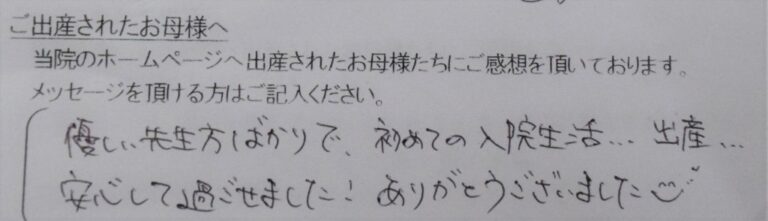 ご出産されたお母様へ
当院のホームページへ出産されたお母様たちにご感想を頂いております。
メッセージを頂ける方はご記入ください。
優しい先生方ばかりで、初めての入院生活… 出産…
安心して過ごせました! ありがとうございました